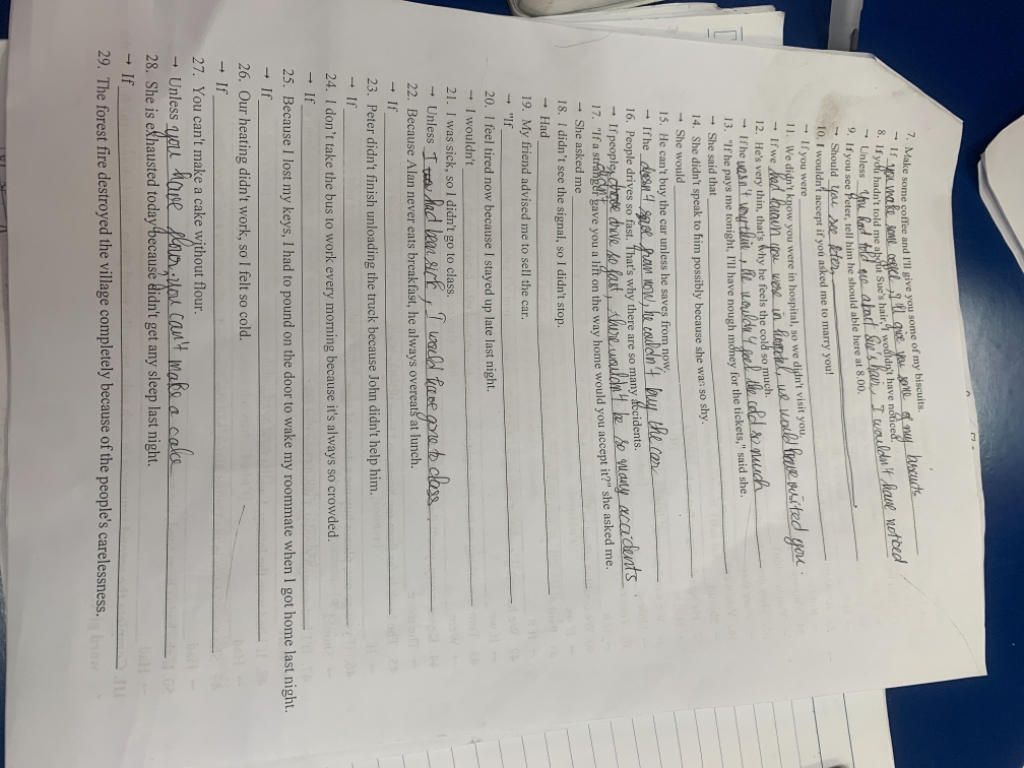 7. Make some coffee and I'll give you some of my biscuits.
→ If you make some coffee, I'll give you some of my biscuits
8. If you hadn't told me about Sue's hair, I wouldn't have noticed.
→ Unless you had told me about Sue's hair, I wouldn't have noticed
9. If you see Peter, tell him he should able here at 8.00.
→ Should you see Peter,
10. I wouldn't accept if you asked me to marry you!
→ If you were
11. We didn't know you were in hospital, so we didn't visit you.
→ If we had known you were in hospital, we would have visited you.
12. He's very thin, that's why he feels the cold so much.
→ If he wasn't very thin, he wouldn't feel the cold so much
13. "If he pays me tonight, I'll have nough money for the tickets," said she.
→ She said that
14. She didn't speak to him possibly because she was so shy.
→ She would
15. He can't buy the car unless he saves from now.
→ If he doesn't save from now, he couldn't buy the car
16. People drives so fast. That's why there are so many accidents.
→ If people drive so fast, there wouldn't be so many accidents.
17. "If a gave you a lift on the way home would you accept it?" she asked me.
→ She asked me
18. I didn't see the signal, so I didn't stop.
→ Had
19. My friend advised me to sell the car.
→ "If
20. I feel tired now because I stayed up late last night.
→ I wouldn't
21. I was sick, so I didn't go to class.
→ Unless I had been sick, I would have gone to class.
22. Because Alan never eats breakfast, he always overeats at lunch.
→ If
23. Peter didn't finish unloading the truck because John didn't help him.
→ If
24. I don't take the bus to work every morning because it's always so crowded.
→ If
25. Because I lost my keys, I had to pound on the door to wake my roommate when I got home last night.
→ If
26. Our heating didn't work, so I felt so cold.
→ If
27. You can't make a cake without flour.
→ Unless you have flour, you can't make a cake
28. She is exhausted today because didn't get any sleep last night.
→ If
29. The forest fire destroyed the village completely because of the people's carelessness.